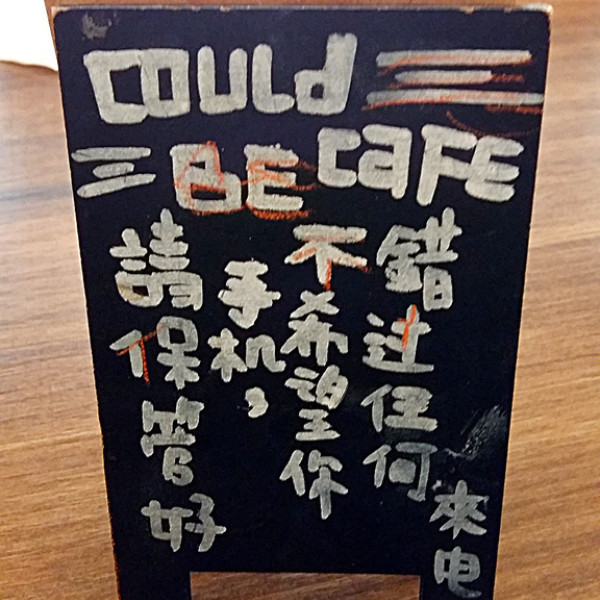 COULd
BE CaFE
請保管好
手机，
不希望你
錯过任何
來电